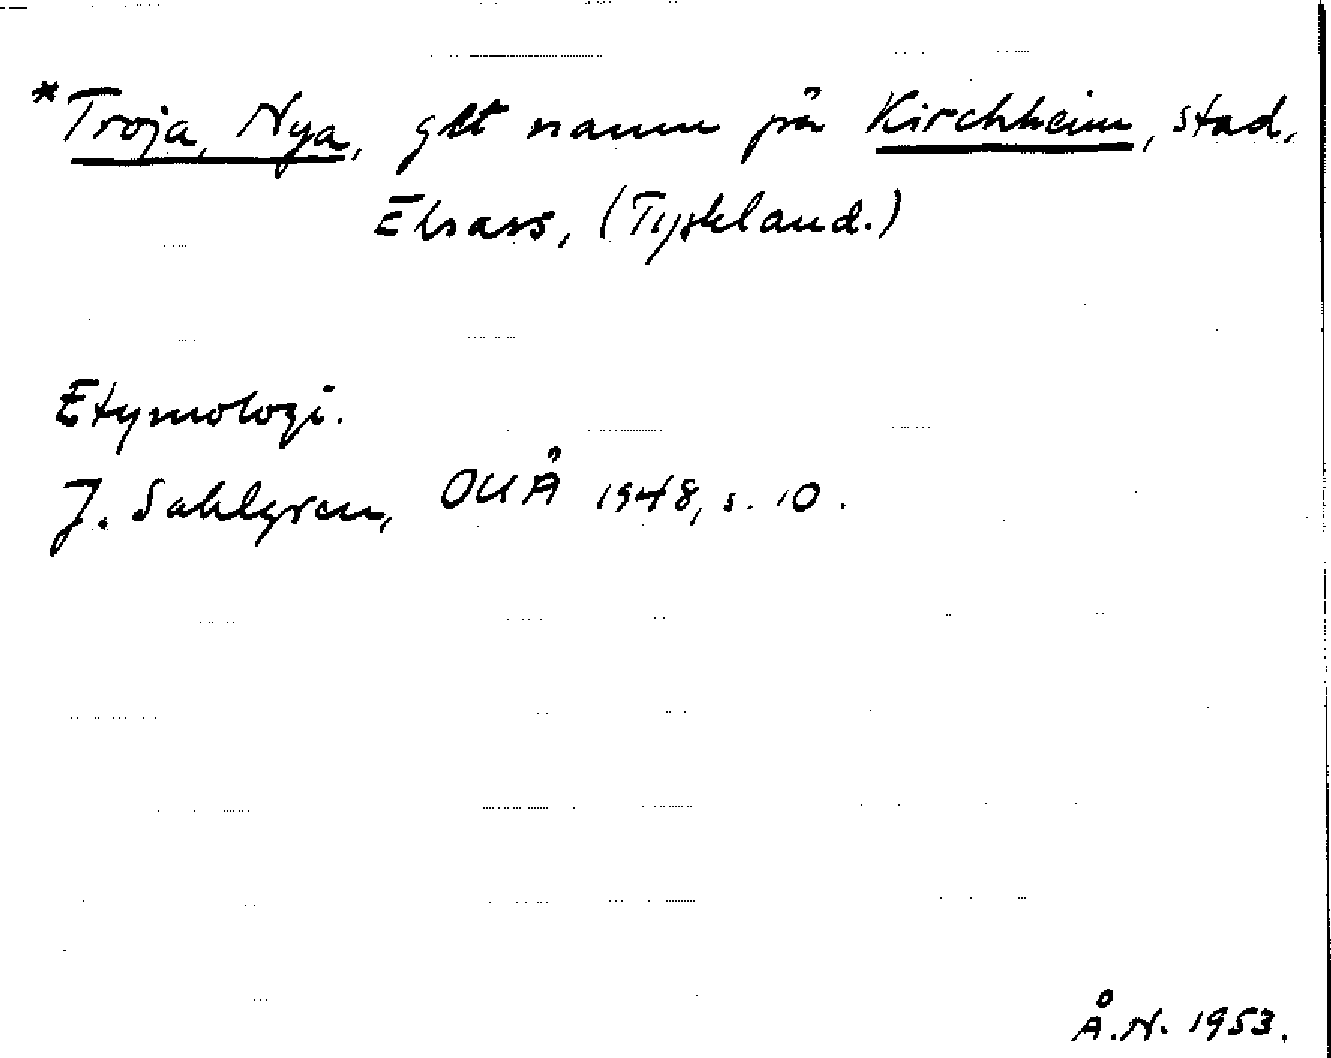 *Troja, Nya, glt namn på Kirchheim, stad,
Elsass, (Tyskland.)
Etymologi.
J. Sahlgren, OUÅ 1948, s. 10.
Å.N. 1953.